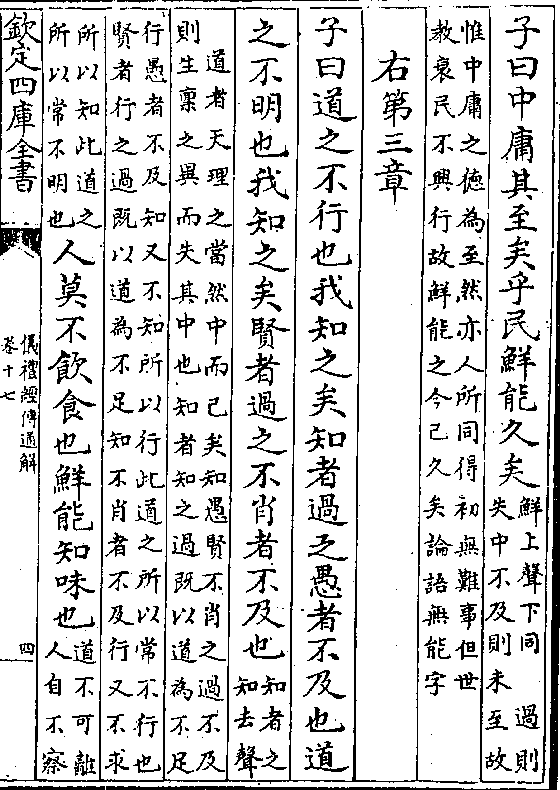 子曰中庸其至矣乎民鮮能久矣
鮮上聲下同 過則
失中不及則未至故
惟中庸之德為至然亦人所同得初無難事但世
教衰民不興行故鮮能之今已久矣論語無能字
右第三章
子曰道之不行也我知之矣知者過之愚者不及也道
之不明也我知之矣賢者過之不肖者不及也
知者之
知去聲
道者天理之當然中而已矣知愚賢不肖之過不及
則生禀之異而失其中也知者知之過既以道為不足
行愚者不及知又不知所以行此道之所以常不行也
賢者行之過既以道為不足知不肖者不及行又不求
所以知此道之
所以常不明也
人莫不飲食也鮮能知味也
道不可離
人自不察
欽定四庫全書
儀禮經傳通解
卷十七
四